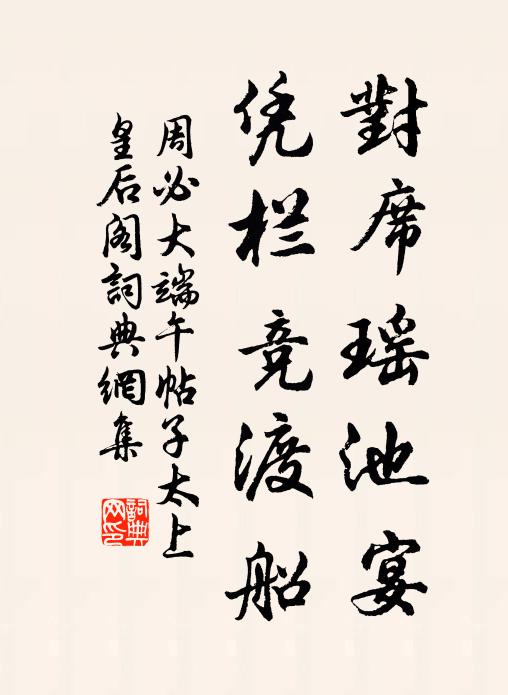 對席瑶池宴
凭栏竞渡船
周必大端午帖子太上
皇后阁詞典網集
詞典
网印